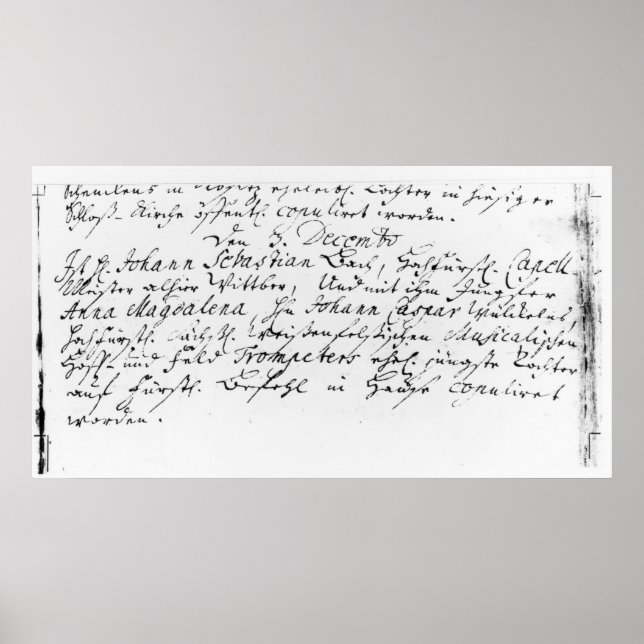 in hiesiger
Schloß-Kirche öffentl. copuliret worden.
Den 3. Decembr
Ist H. Johann Sebastian Bach, Hochfürstl. Capell
Meister alhier Wittber, Und mit ihm Jungfer
Anna Magdalena, Johann Caspar Wülckens,
Hochfürstl. Sächsl. Weißenfelsischen Musicalischen
Hoff- und Feld Trompeters ehel. jüngste Tochter
auf Fürstl. Befehl in Hause copuliret
worden.